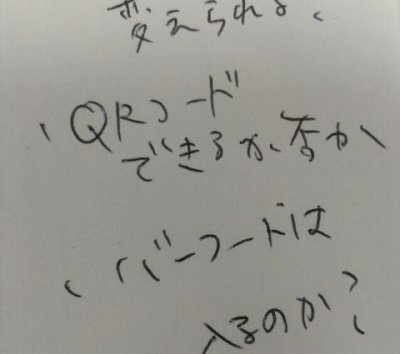 変えられる、
、QRコード
できるか否か
、バーコードは
入るのか?